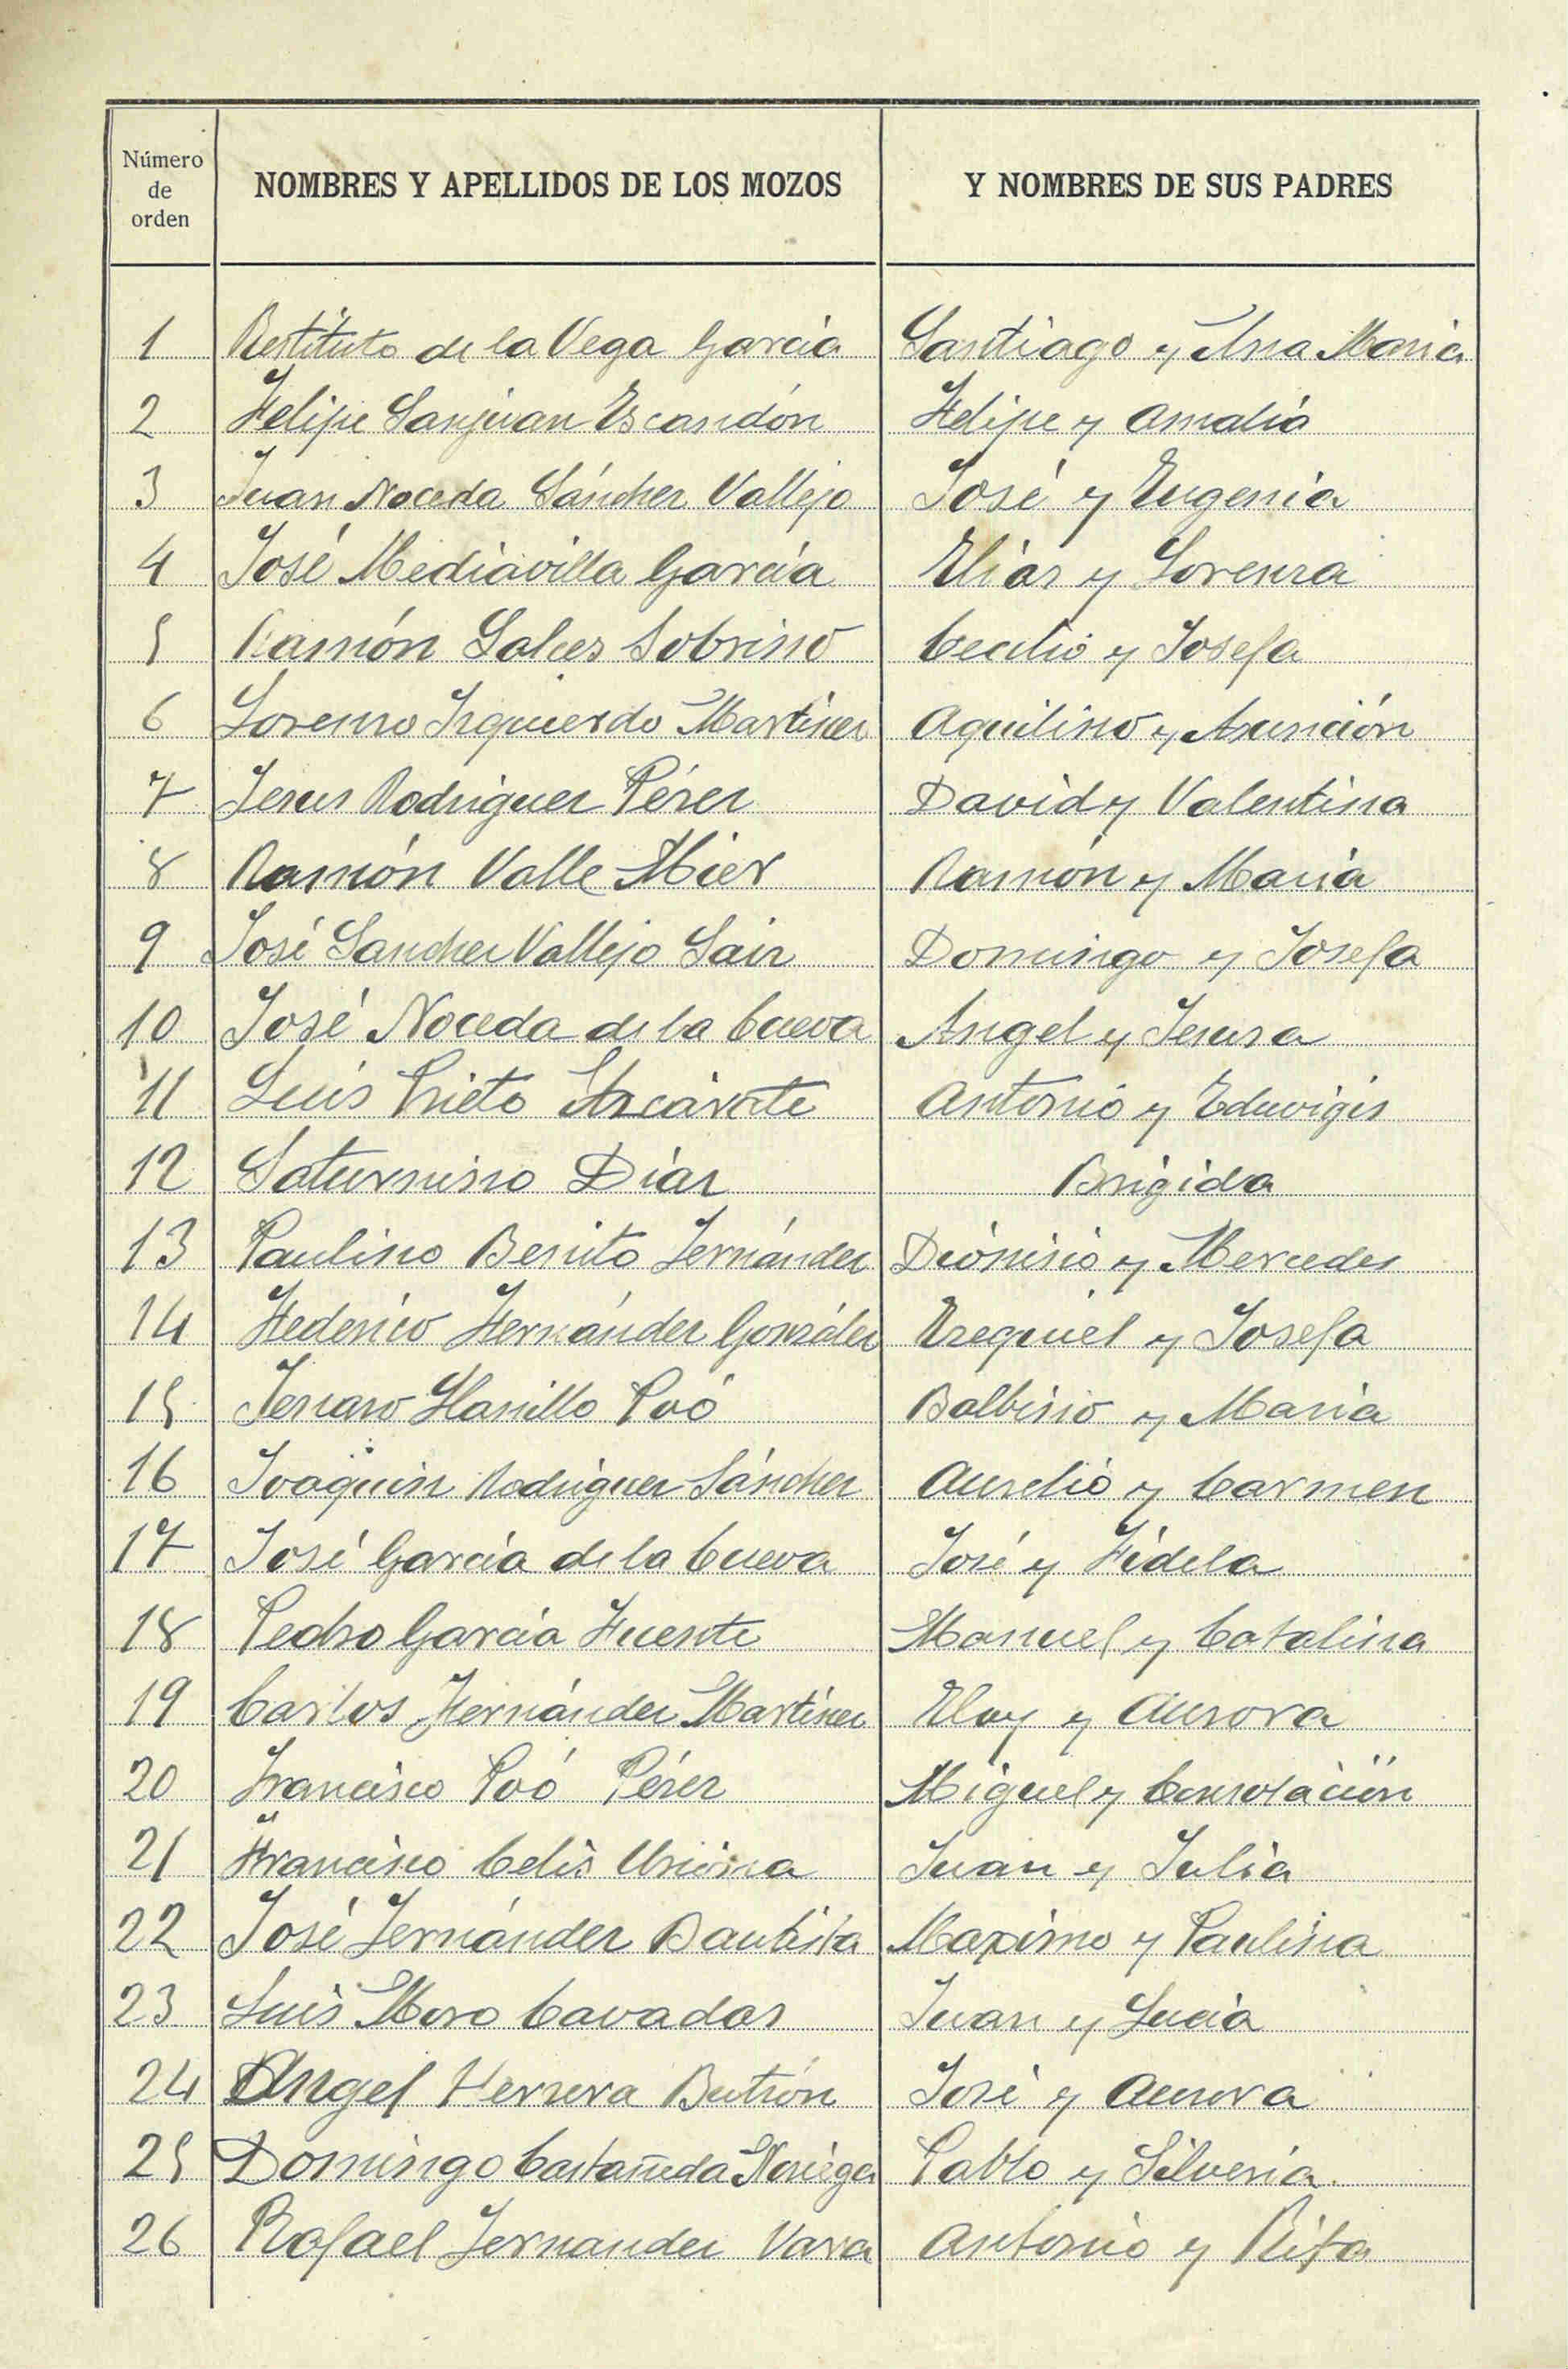 Número
de
orden
NOMBRES Y APELLIDOS DE LOS MOZOS
Y NOMBRES DE SUS PADRES
1 Restituto de la Vega García Santiago y Ana Maria
2 Felipe Sanjuan Escandón Felipe y Amalia
3 Juan Noceda Sánchez Vallejo José y Eugenia
4 José Mediavilla García Elías y Lorenza
5 Ramón Salces Sobrino Cecilio y Josefa
6 Lorenzo Izquierdo Martínez Aquilino y Asunción
7 Jesus Rodriguez Pérez David y Valentina
8 Ramón Valle Mier Ramón y María
9 José Sanchez Vallejo Sainz Domingo y Josefa
10 José Noceda de la Cueva Angel y Jesusa
11 Luis Prieto Azcárate Antonio y Eduvigis
12 Saturnino Díaz Brígida
13 Paulino Benito Fernández Dionisio y Mercedes
14 Federico Hernández González Ezequiel y Josefa
15 Jenaro Llanillo Poó Balbino y María
16 Joaquín Rodríguez Sánchez Aurelio y Carmen
17 José García de la Cueva José y Fidela
18 Pedro García Fuente Manuel y Catalina
19 Carlos Fernández Martínez Eloy y Aurora
20 Francisco Poó Pérez Miguel y Consolación
21 Francisco Celis Juan y Julia
22 José Fernández Bautista Maximo y Paulina
23 Luis Moro Cavadas Juan y Lucía
24 Angel Herrera Butrón José y Aurora
25 Domingo Castañeda Noriega Pablo y Silveria
26 Rafael Fernandez Vara Antonio y Rita